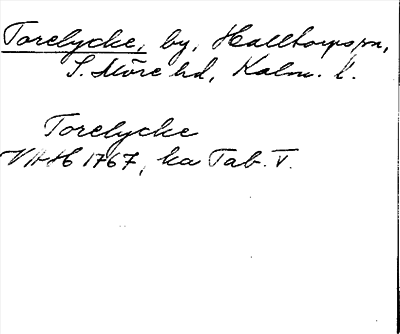 Torelycke, by, Halltorps sn,
S. Möre hd, Kalm. l.
Torelycke
VHAH 1767, ka Tab. V.